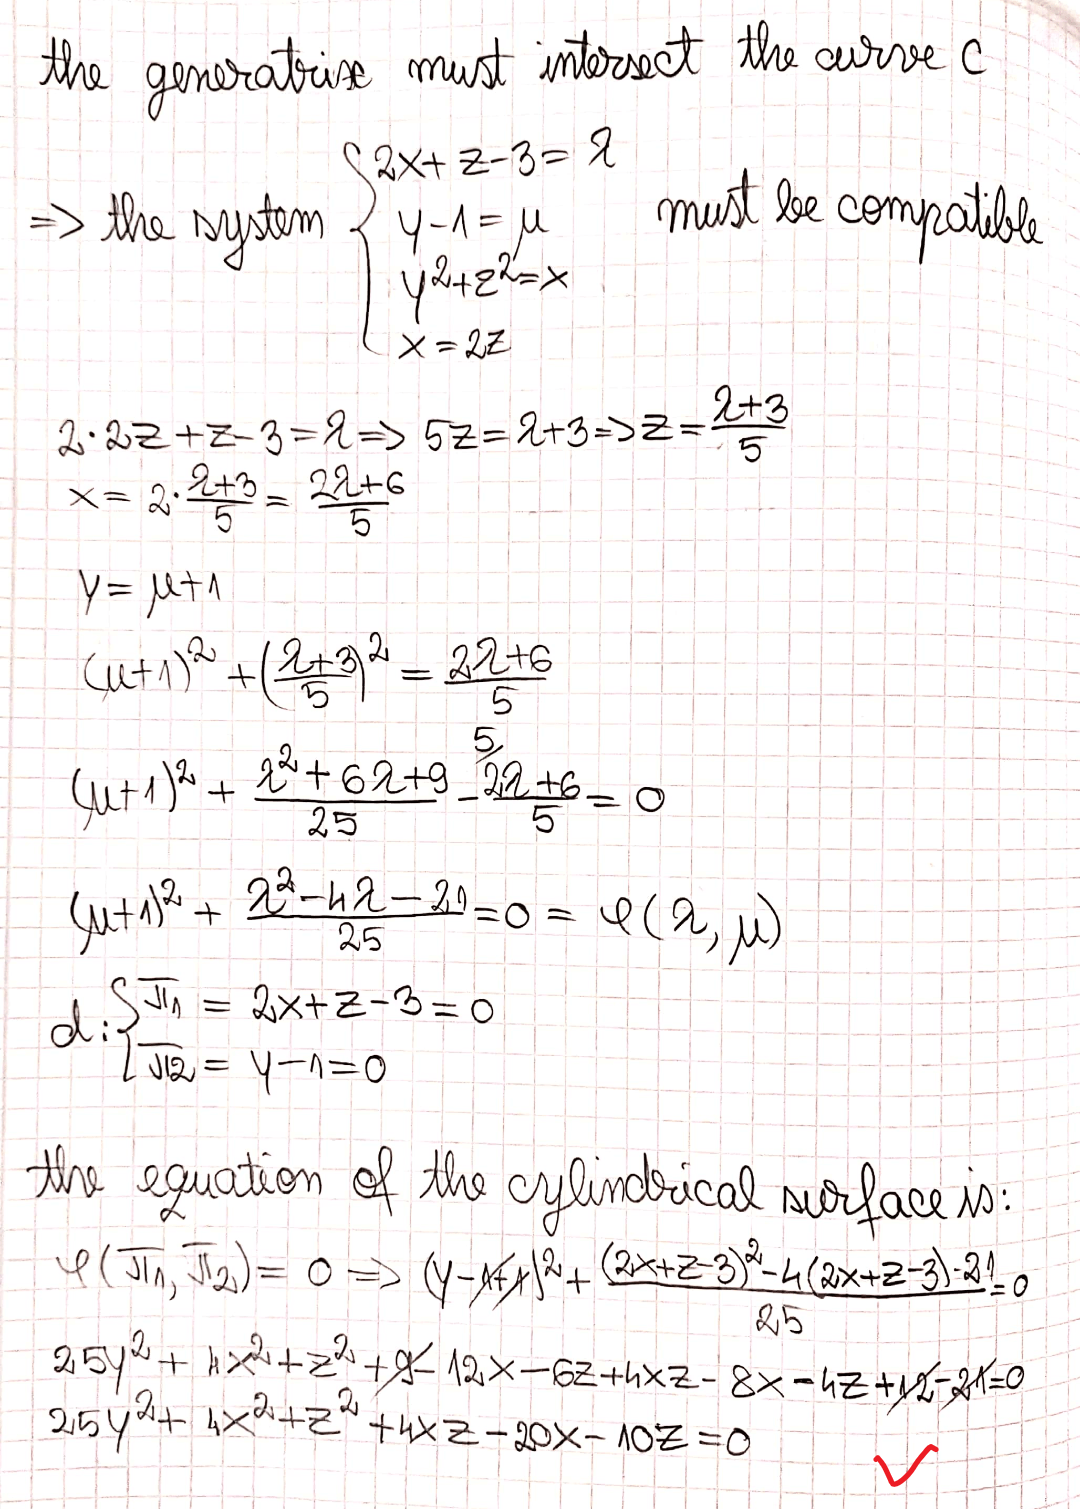 the generatrix must intersect the curve C
=> the system { 2x+z-3=λ
y-1=μ
y²+z²=x
x=2z must be compatible
2·2z+z-3=λ => 5z=λ+3 => z=(λ+3)/5
x=2·(λ+3)/5=(2λ+6)/5
y=μ+1
(μ+1)²+((λ+3)/5)²=(2λ+6)/5
(μ+1)²+(λ²+6λ+9)/25-⁵⁾(2λ+6)/5=0
(μ+1)²+(λ²-4λ-21)/25=0=φ(λ,μ)
d: { π1=2x+z-3=0
π2=y-1=0
the equation of the cylindrical surface is:
φ(π1,π2)=0 => (y-1+1)²+((2x+z-3)²-4(2x+z-3)-21)/25=0
25y²+4x²+z²+9-12x-6z+4xz-8x-4z+12-21=0
25y²+4x²+z²+4xz-20x-10z=0